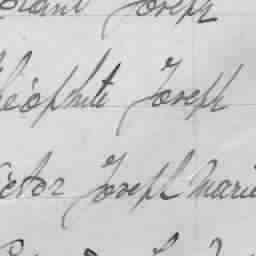 Joseph
Théophile Joseph
Victor Joseph Marie